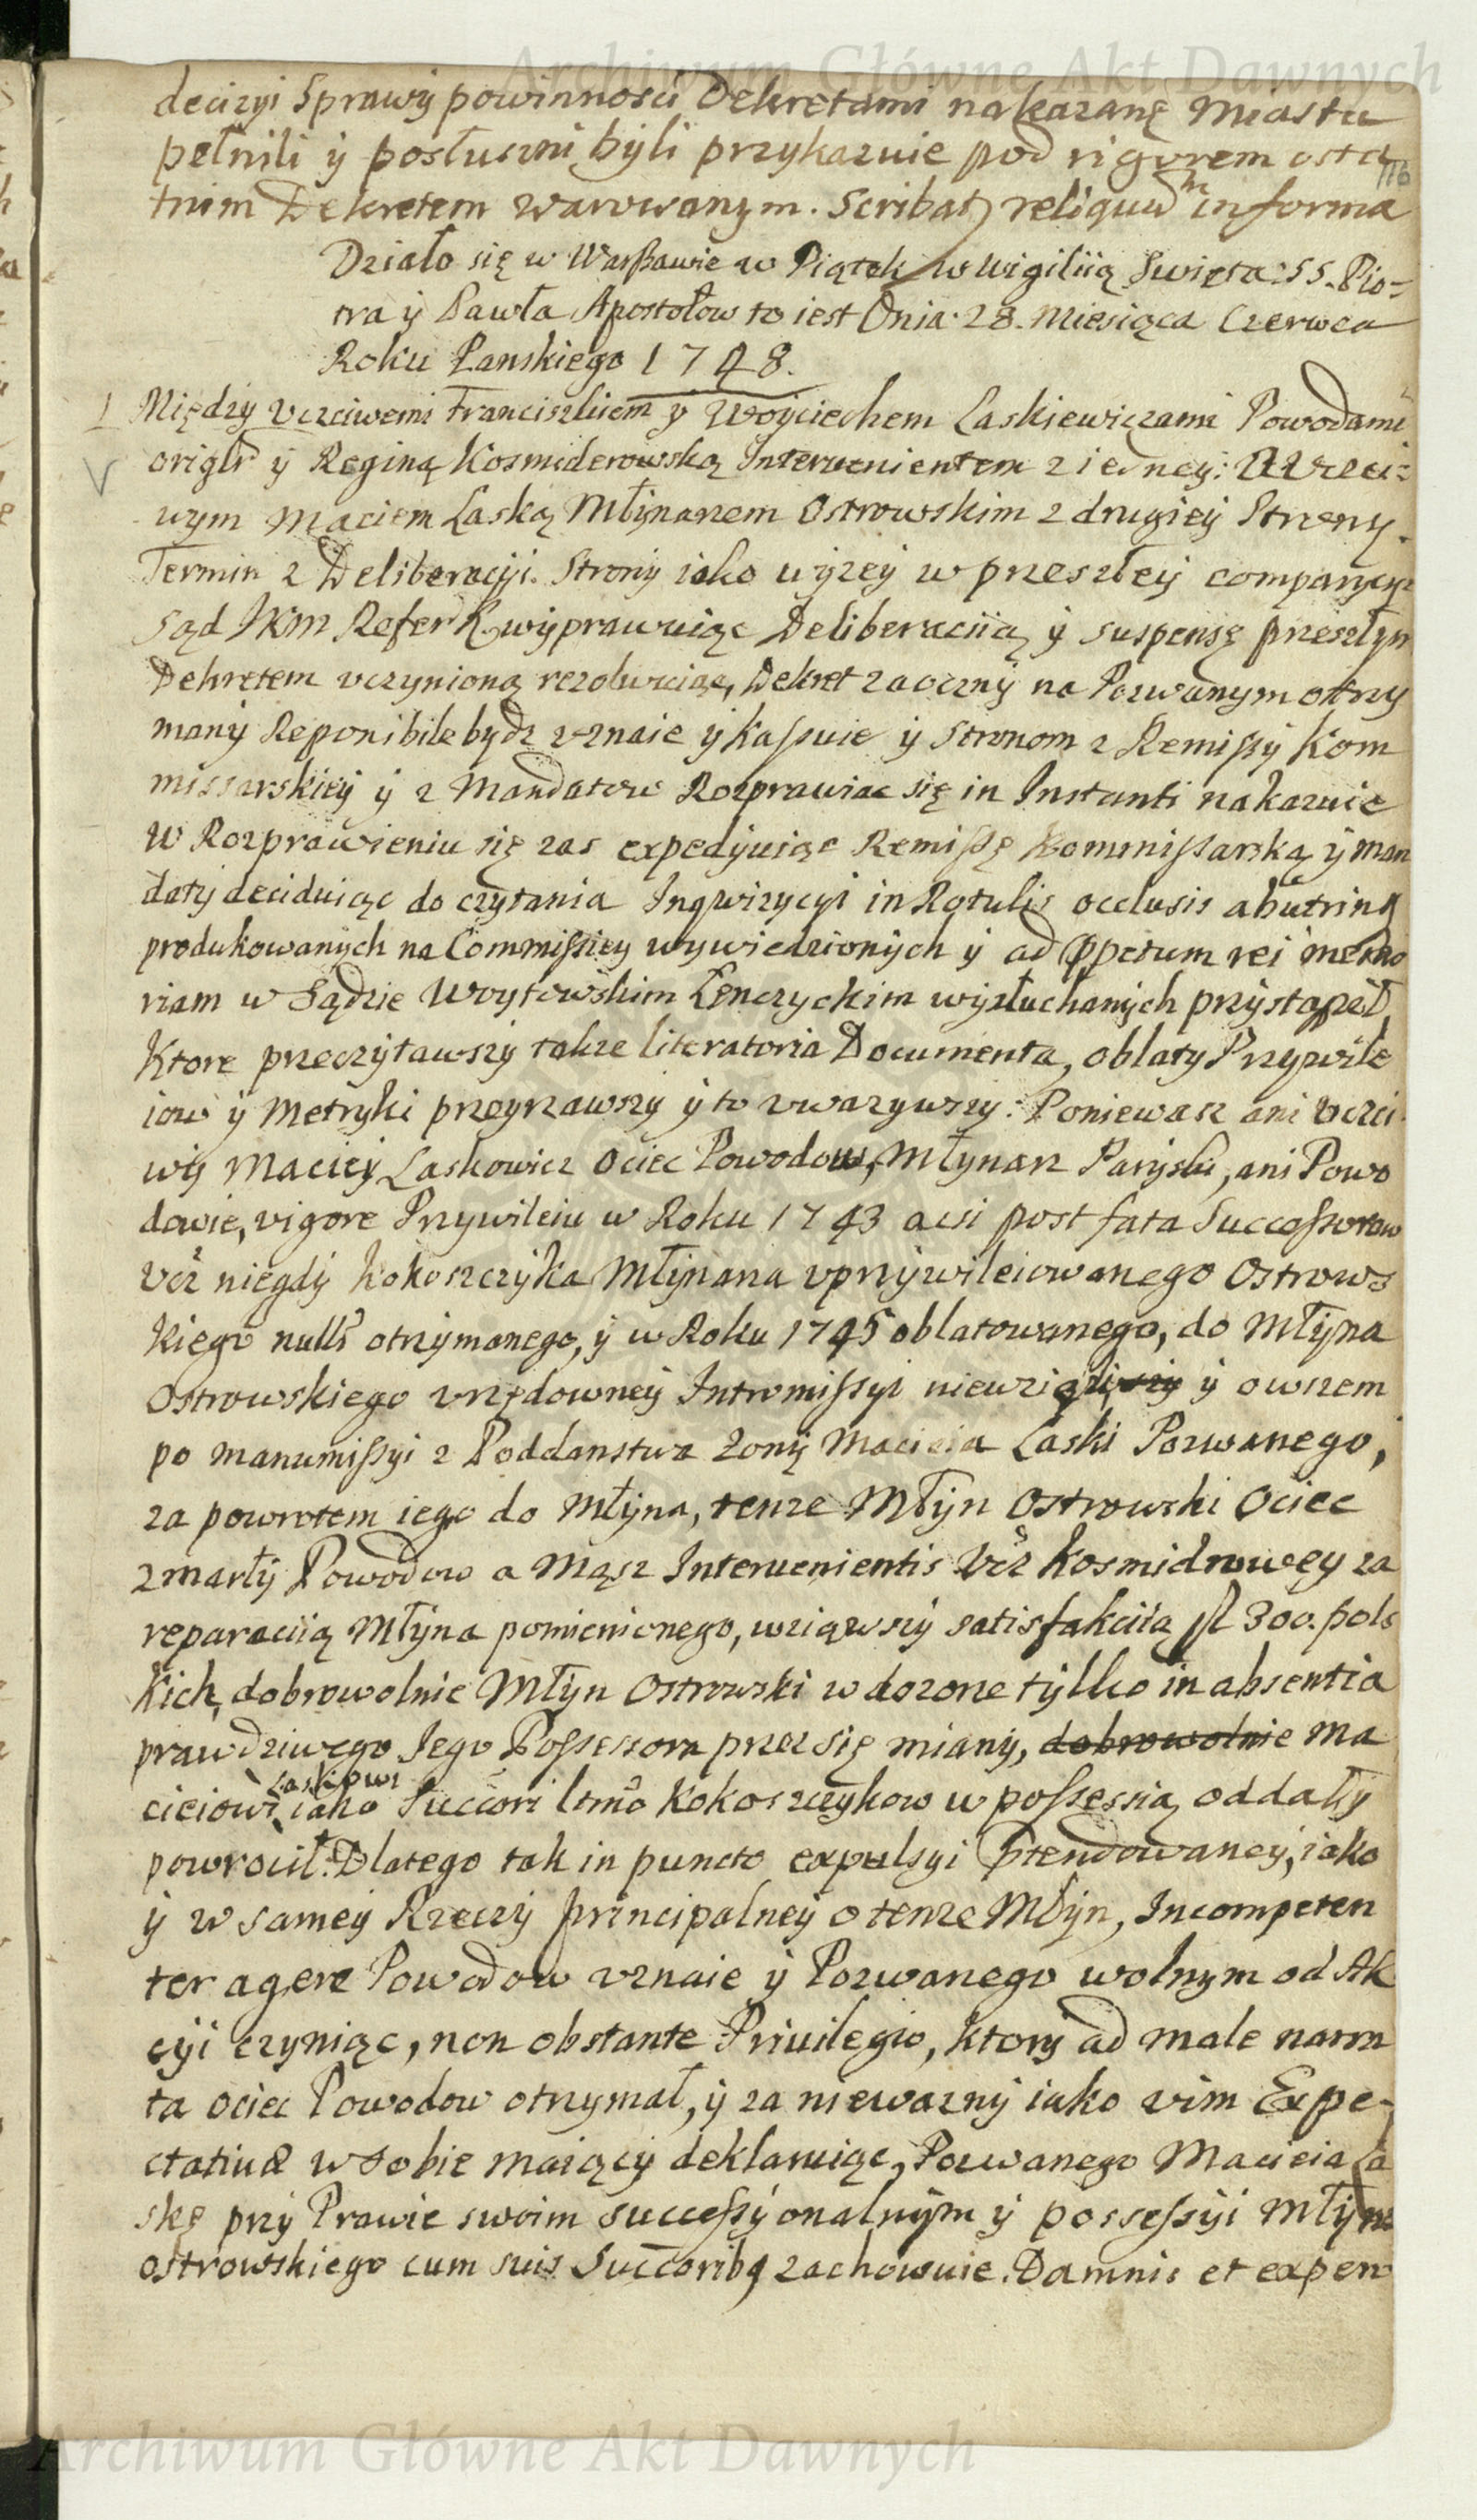 Archiwum Główne Akt Dawnych
decizyi Sprawy powinnosci Dekretami nakazanę Miastu
pełnili ÿ posłuszni byli przykazuie pod rigorem osta
116
tnim Dekretem warowanym. Scribat reliquu in forma
Działo się w Warszawie w Piątek w wigiliią Swięta SS. Pio=
tra ÿ Pawła Apostołow to iest Dnia 28. Miesiąca Czerwca
Roku Panskiego 1748.
1 Między Vczciwemi Franciszkiem y Woyciechem Laskiewiczami Powodami
V origlr ÿ Reginą Kosmiderowską Intervenientem z iedney: A Vczci=
wym Maciem Laską Młynarzem Ostrowskim z drugiey Strony.
Termin z Deliberacyi. Strony iako wyzey w przeszłey comparycyi
Sąd JKM Refer K. wyprawuiąc Deliberaciią ÿ suspensę przeszłym
Dekretem vczynioną rezolwuiąc, Dekret zaoczny na Pozwanym otrzy
many Reponibile bydz vznaie ÿ kassuie ÿ Stronom z Remissy Kom
missarskiey ÿ z Mandatow Rozprawiac się in Instanti nakazuie
W Rozprawieniu się zas expedyuiąc Remissę Kommissarską ÿ man
daty deciduiąc do czytania Inqwizycyi in Rotulis occlusis ab utrinq
produkowanych na Commissiey wywiedzionych ÿ ad ppetuam rei memo
riam w Sądzie Woytowskim Lenczyckim wysłuchanych przystąpił,
Ktore przeczytawszy takze literatoria Documenta, oblaty Przywile
iow ÿ Metryki przeyrzawszy ÿ to vwazywszy: Poniewasz ani Vczci
wy Maciey Laskowicz Ociec Powodow, Młynarz Paryski, ani Powo
dowie, vigore Przywileiu w Roku 1743 acsi post fata Successorow
Vcz niegdy Kokoszczyka Młynarza vprzywileiowanego Ostrows
kiego nullr otrzymanego, ÿ w Roku 1745 oblatowanego, do Młyna
Ostrowskiego vrzędowney Intromissyi niewzięli ÿ owszem
po manumissyi z Poddanstwa Zony Macieia Laski Pozwanego,
za powrotem iego do Młyna, tenze Młyn Ostrowski Ociec
zmarły Powodow a Mąsz Intervenientis Vcz Kosmidrowey za
reparaciią Młyna pomienionego, wziąwszy satisfakciią fl 300. pols
kich, dobrowolnie Młyn Ostrowski w dozorze tylko in absentia
prawdziwego Jego Possessora przez się miany, dobrowolnie Ma
cieiowi Laskowi iako Succori ltmo Kokoszczykow w possessią oddały
powrocił. Dlatego tak in puncto expulsyi ptendowaney, iako
ÿ w samey Rzeczy principalney o tenze Młyn, Incompeten
ter agere Powodow vznaie ÿ Pozwanego wolnym od Ak
cyi czyniąc, non obstante Privilegio, ktory ad male narra
ta ociec Powodow otrzymał, ÿ za niewazny iako vim Expe-
ctativæ w sobie maiący deklaruiąc, Pozwanego Macieia La
skę przy Prawie swoim successyonalnym ÿ possessyi Młyna
Ostrowskiego cum suis Succoribq zachowuie. Damnis et expen
Archiwum Główne Akt Dawnych